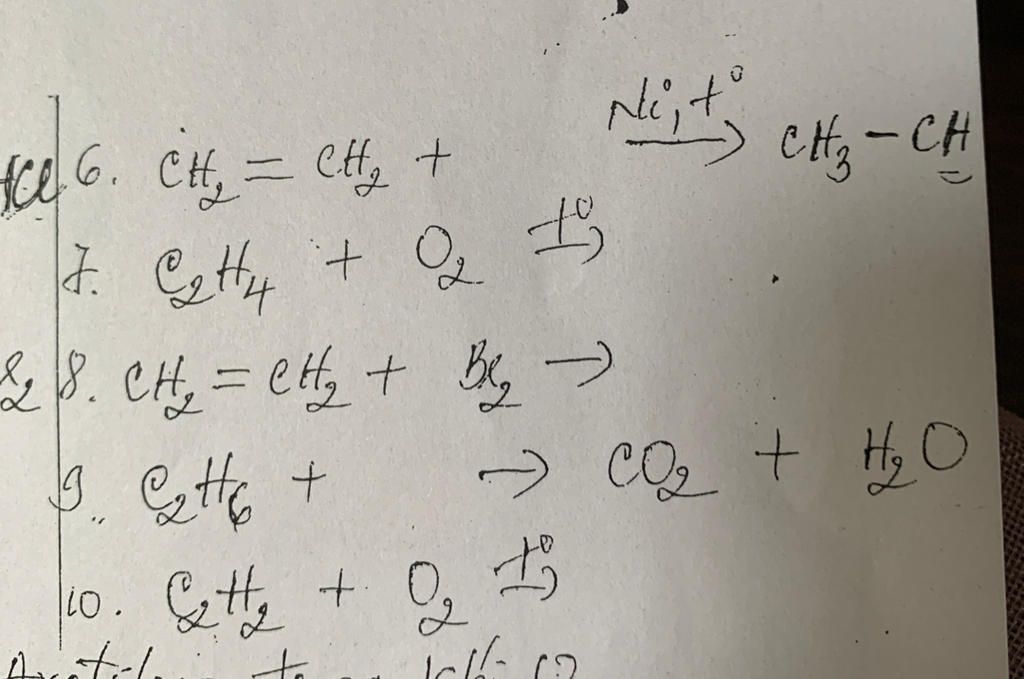 HCl 6. CH₂ = CH₂ + Ni, t° → CH₃ – CH
7. C₂H₄ + O₂ t° →
8. CH₂ = CH₂ + Br₂ →
9. C₂H₆ + → CO₂ + H₂O
10. C₂H₂ + O₂ t° →